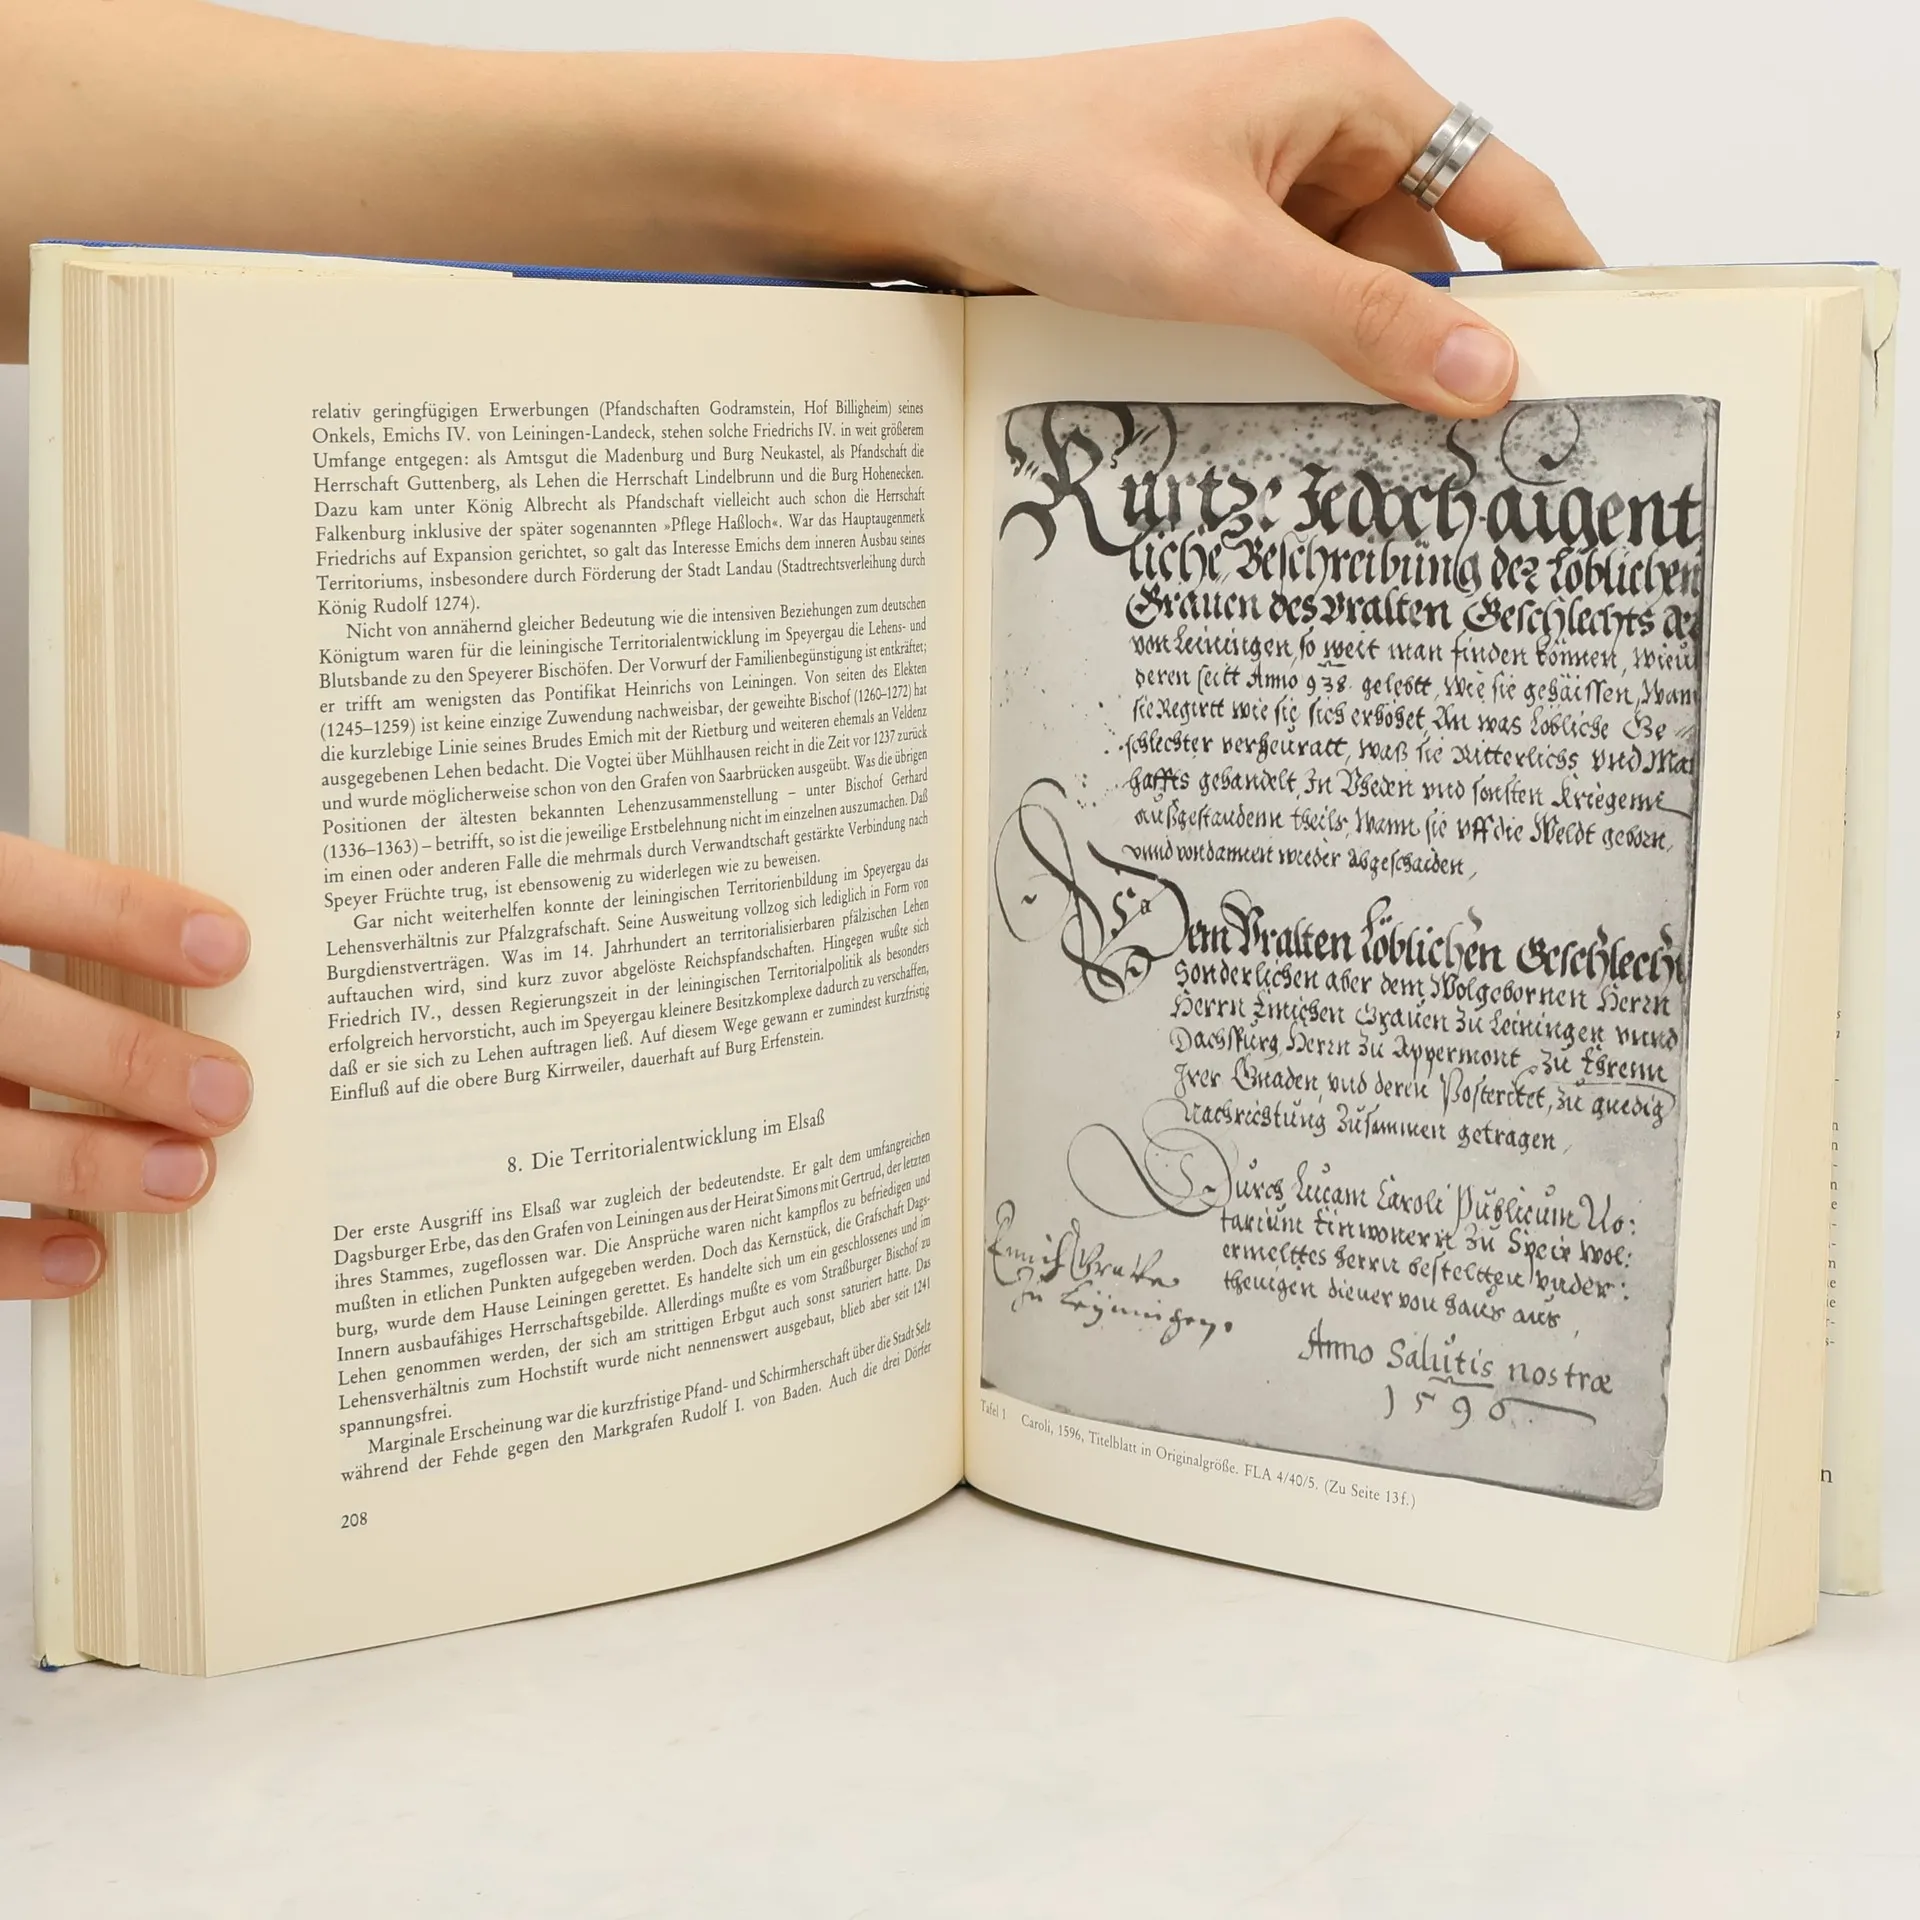 relativ geringfügigen Erwerbungen (Pfandschaften Godramstein, Hof Billigheim) seines
Onkels, Emichs IV. von Leiningen-Landeck, stehen solche Friedrichs IV. in weit größerem
Umfange entgegen: als Amtsgut die Madenburg und Burg Neukastel, als Pfandschaft die
Herrschaft Guttenberg, als Lehen die Herrschaft Lindelbrunn und die Burg Hohenecken.
Dazu kam unter König Albrecht als Pfandschaft vielleicht auch schon die Herrschaft
Falkenburg inklusive der später sogenannten »Pflege Haßloch«. War das Hauptaugenmerk
Friedrichs auf Expansion gerichtet, so galt das Interesse Emichs dem inneren Ausbau seines
Territoriums, insbesondere durch Förderung der Stadt Landau (Stadtrechtsverleihung durch
König Rudolf 1274).
Nicht von annähernd gleicher Bedeutung wie die intensiven Beziehungen zum deutschen
Königtum waren für die leiningische Territorialentwicklung im Speyergau die Lehens- und
Blutsbande zu den Speyerer Bischöfen. Der Vorwurf der Familienbegünstigung ist entkräftet;
er trifft am wenigsten das Pontifikat Heinrichs von Leiningen. Von seiten des Elekten
(1245–1259) ist keine einzige Zuwendung nachweisbar, der geweihte Bischof (1260–1272) hat
die kurzlebige Linie seines Brudes Emich mit der Rietburg und weiteren ehemals an Veldenz
ausgegebenen Lehen bedacht. Die Vogtei über Mühlhausen reicht in die Zeit vor 1237 zurück
und wurde möglicherweise schon von den Grafen von Saarbrücken ausgeübt. Was die übrigen
Positionen der ältesten bekannten Lehenzusammenstellung – unter Bischof Gerhard
(1336–1363) – betrifft, so ist die jeweilige Erstbelehnung nicht im einzelnen auszumachen. Daß
im einen oder anderen Falle die mehrmals durch Verwandtschaft gestärkte Verbindung nach
Speyer Früchte trug, ist ebensowenig zu widerlegen wie zu beweisen.
Gar nicht weiterhelfen konnte der leiningischen Territorienbildung im Speyergau das
Lehensverhältnis zur Pfalzgrafschaft. Seine Ausweitung vollzog sich lediglich in Form von
Burgdienstverträgen. Was im 14. Jahrhundert an territorialisierbaren pfälzischen Lehen
auftauchen wird, sind kurz zuvor abgelöste Reichspfandschaften. Hingegen wußte sich
Friedrich IV., dessen Regierungszeit in der leiningischen Territorialpolitik als besonders
erfolgreich hervorsticht, auch im Speyergau kleinere Besitzkomplexe dadurch zu verschaffen,
daß er sie sich zu Lehen auftragen ließ. Auf diesem Wege gewann er zumindest kurzfristig
Einfluß auf die obere Burg Kirrweiler, dauerhaft auf Burg Erfenstein.
8. Die Territorialentwicklung im Elsaß
Der erste Ausgriff ins Elsaß war zugleich der bedeutendste. Er galt dem umfangreichen
Dagsburger Erbe, das den Grafen von Leiningen aus der Heirat Simons mit Gertrud, der letzten
ihres Stammes, zugeflossen war. Die Ansprüche waren nicht kampflos zu befriedigen und
mußten in etlichen Punkten aufgegeben werden. Doch das Kernstück, die Grafschaft Dags-
burg, wurde dem Hause Leiningen gerettet. Es handelte sich um ein geschlossenes und im
Innern ausbaufähiges Herrschaftsgebilde. Allerdings mußte es vom Straßburger Bischof zu
Lehen genommen werden, der sich am strittigen Erbgut auch sonst saturiert hatte. Das
Lehensverhältnis zum Hochstift wurde nicht nennenswert ausgebaut, blieb aber seit 1241
spannungsfrei.
Marginale Erscheinung war die kurzfristige Pfand- und Schirmherschaft über die Stadt Selz
während der Fehde gegen den Markgrafen Rudolf I. von Baden. Auch die drei Dörfer
208
Kurtze Jedoch aigent
liche Beschreibung der Löblichen
Grauen des Vralten Geschlechts der
von Leiningen, so weit man finden können, wieui
deren seitt Anno 938. gelebtt, wie sie gehaissen, Wann
sie Regirtt wie sie sich erhöhet, An was Löbliche Ge
schlechter verheuratt, waß sie Ritterlichs vnd Man
haffts gehandelt, In Vheden vnd sonsten Kriegenn
außgestandenn theils, Wann sie vff die Weldt geborn,
vnnd von dannen wieder abgeschaiden,
Dem Vralten Löblichen Geschlecht
Sonderlichen aber dem Wolgebornen Herrn
Herrn Emichen Grauen zu Leiningen vnnd
Dachspurg, Herrn zu Appermont, zu Ehrenn
Irer Gnaden, vnd deren Posteritet, zu gnedig
Nachrichtung Zusammen getragen,
Durch Lucam Caroli Publicum No:
tarium Einwonern zu Speir wol:
ermelttes Herrn bestelttenn vnder:
thenigen diener von haus aus,
Emich Graffe
zu Leyningen,
Anno Salutis nostræ
1596
Tafel 1 Caroli, 1596, Titelblatt in Originalgröße. FLA 4/40/5. (Zu Seite 13f.)